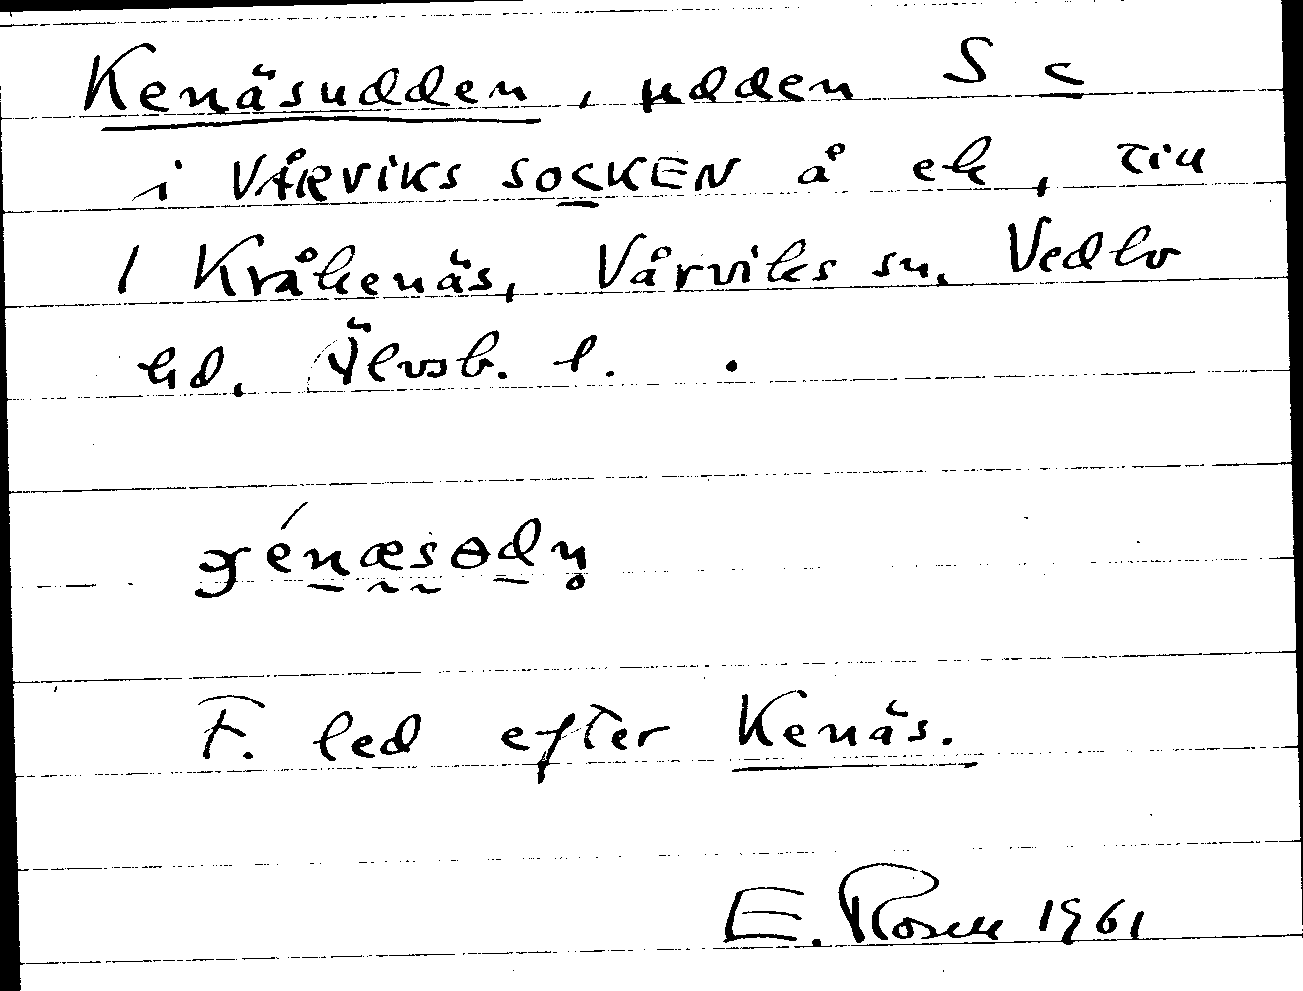 Kenäsudden, udden S c
i VÅRVIKS SOCKEN å ek, till
1 Kråkenäs, Vårviks sn. Vedbo
hd. Älvsb. l.
F. led efter Kenäs.
E. Rosell 1961